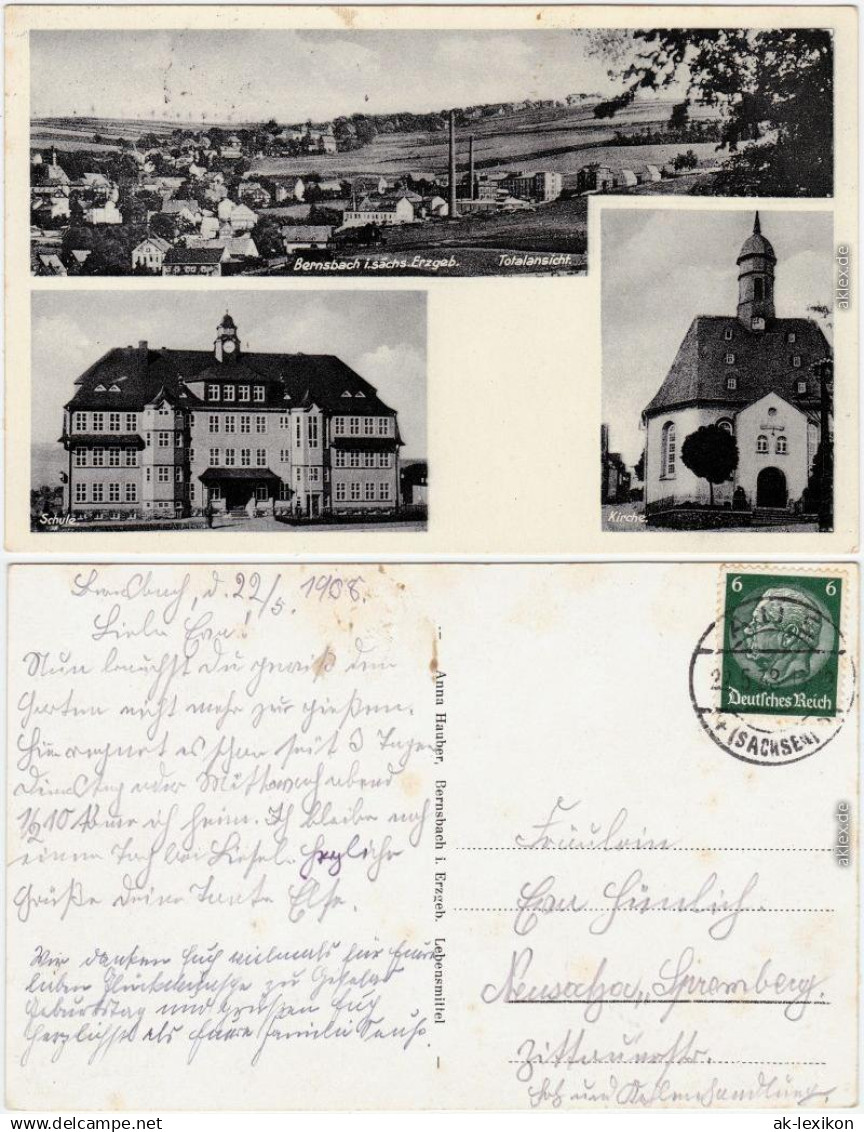 Bernsbach i. sächs. Erzgeb. Totalansicht.
Schule
Kirche.
aklex.de
Bernsbach, d. 22/5. 1908.
Liebe Eva!
Nun brauchst Du gewiß den
Garten nicht mehr zu gießen.
Hier regnet es schon seit 3 Tagen
Dienstag oder Mittwoch abend
1/2 10 komme ich heim. Ich bleibe noch
einen Tag bei Liesel. Herzliche
Grüße Deine Tante Else.
Wir danken Euch vielmals für Eure
lieben Glückwünsche zu
Geburtstag und grüßen Euch
herzlichst als Eure Familie
Anna Hauber, Bernsbach i. Erzgeb. Lebensmittel
6 6
Deutsches Reich
(SACHSEN)
Fräulein
Eva
Neusalza-Spremberg.
Zittauerstr.
Holz und Kohlenhandlung.
aklex.de
ak-lexikon